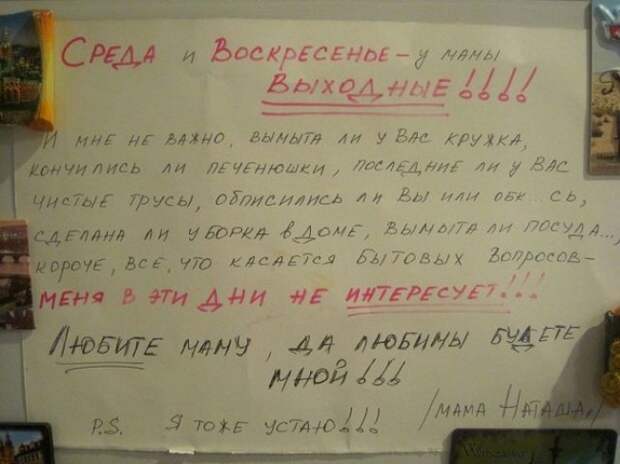 Среда и Воскресенье – у мамы
выходные!!!!
И мне не важно, вымыта ли у вас кружка,
кончились ли печенюшки, последние ли у вас
чистые трусы, обписились ли вы или обк...сь,
сделана ли уборка в доме, вымыта ли посуда...,
короче, все, что касается бытовых вопросов –
меня в эти дни не интересует!!!
Любите маму, да любимы будете
мной!!!
/мама Наташа/
P.S. Я тоже устаю!!!